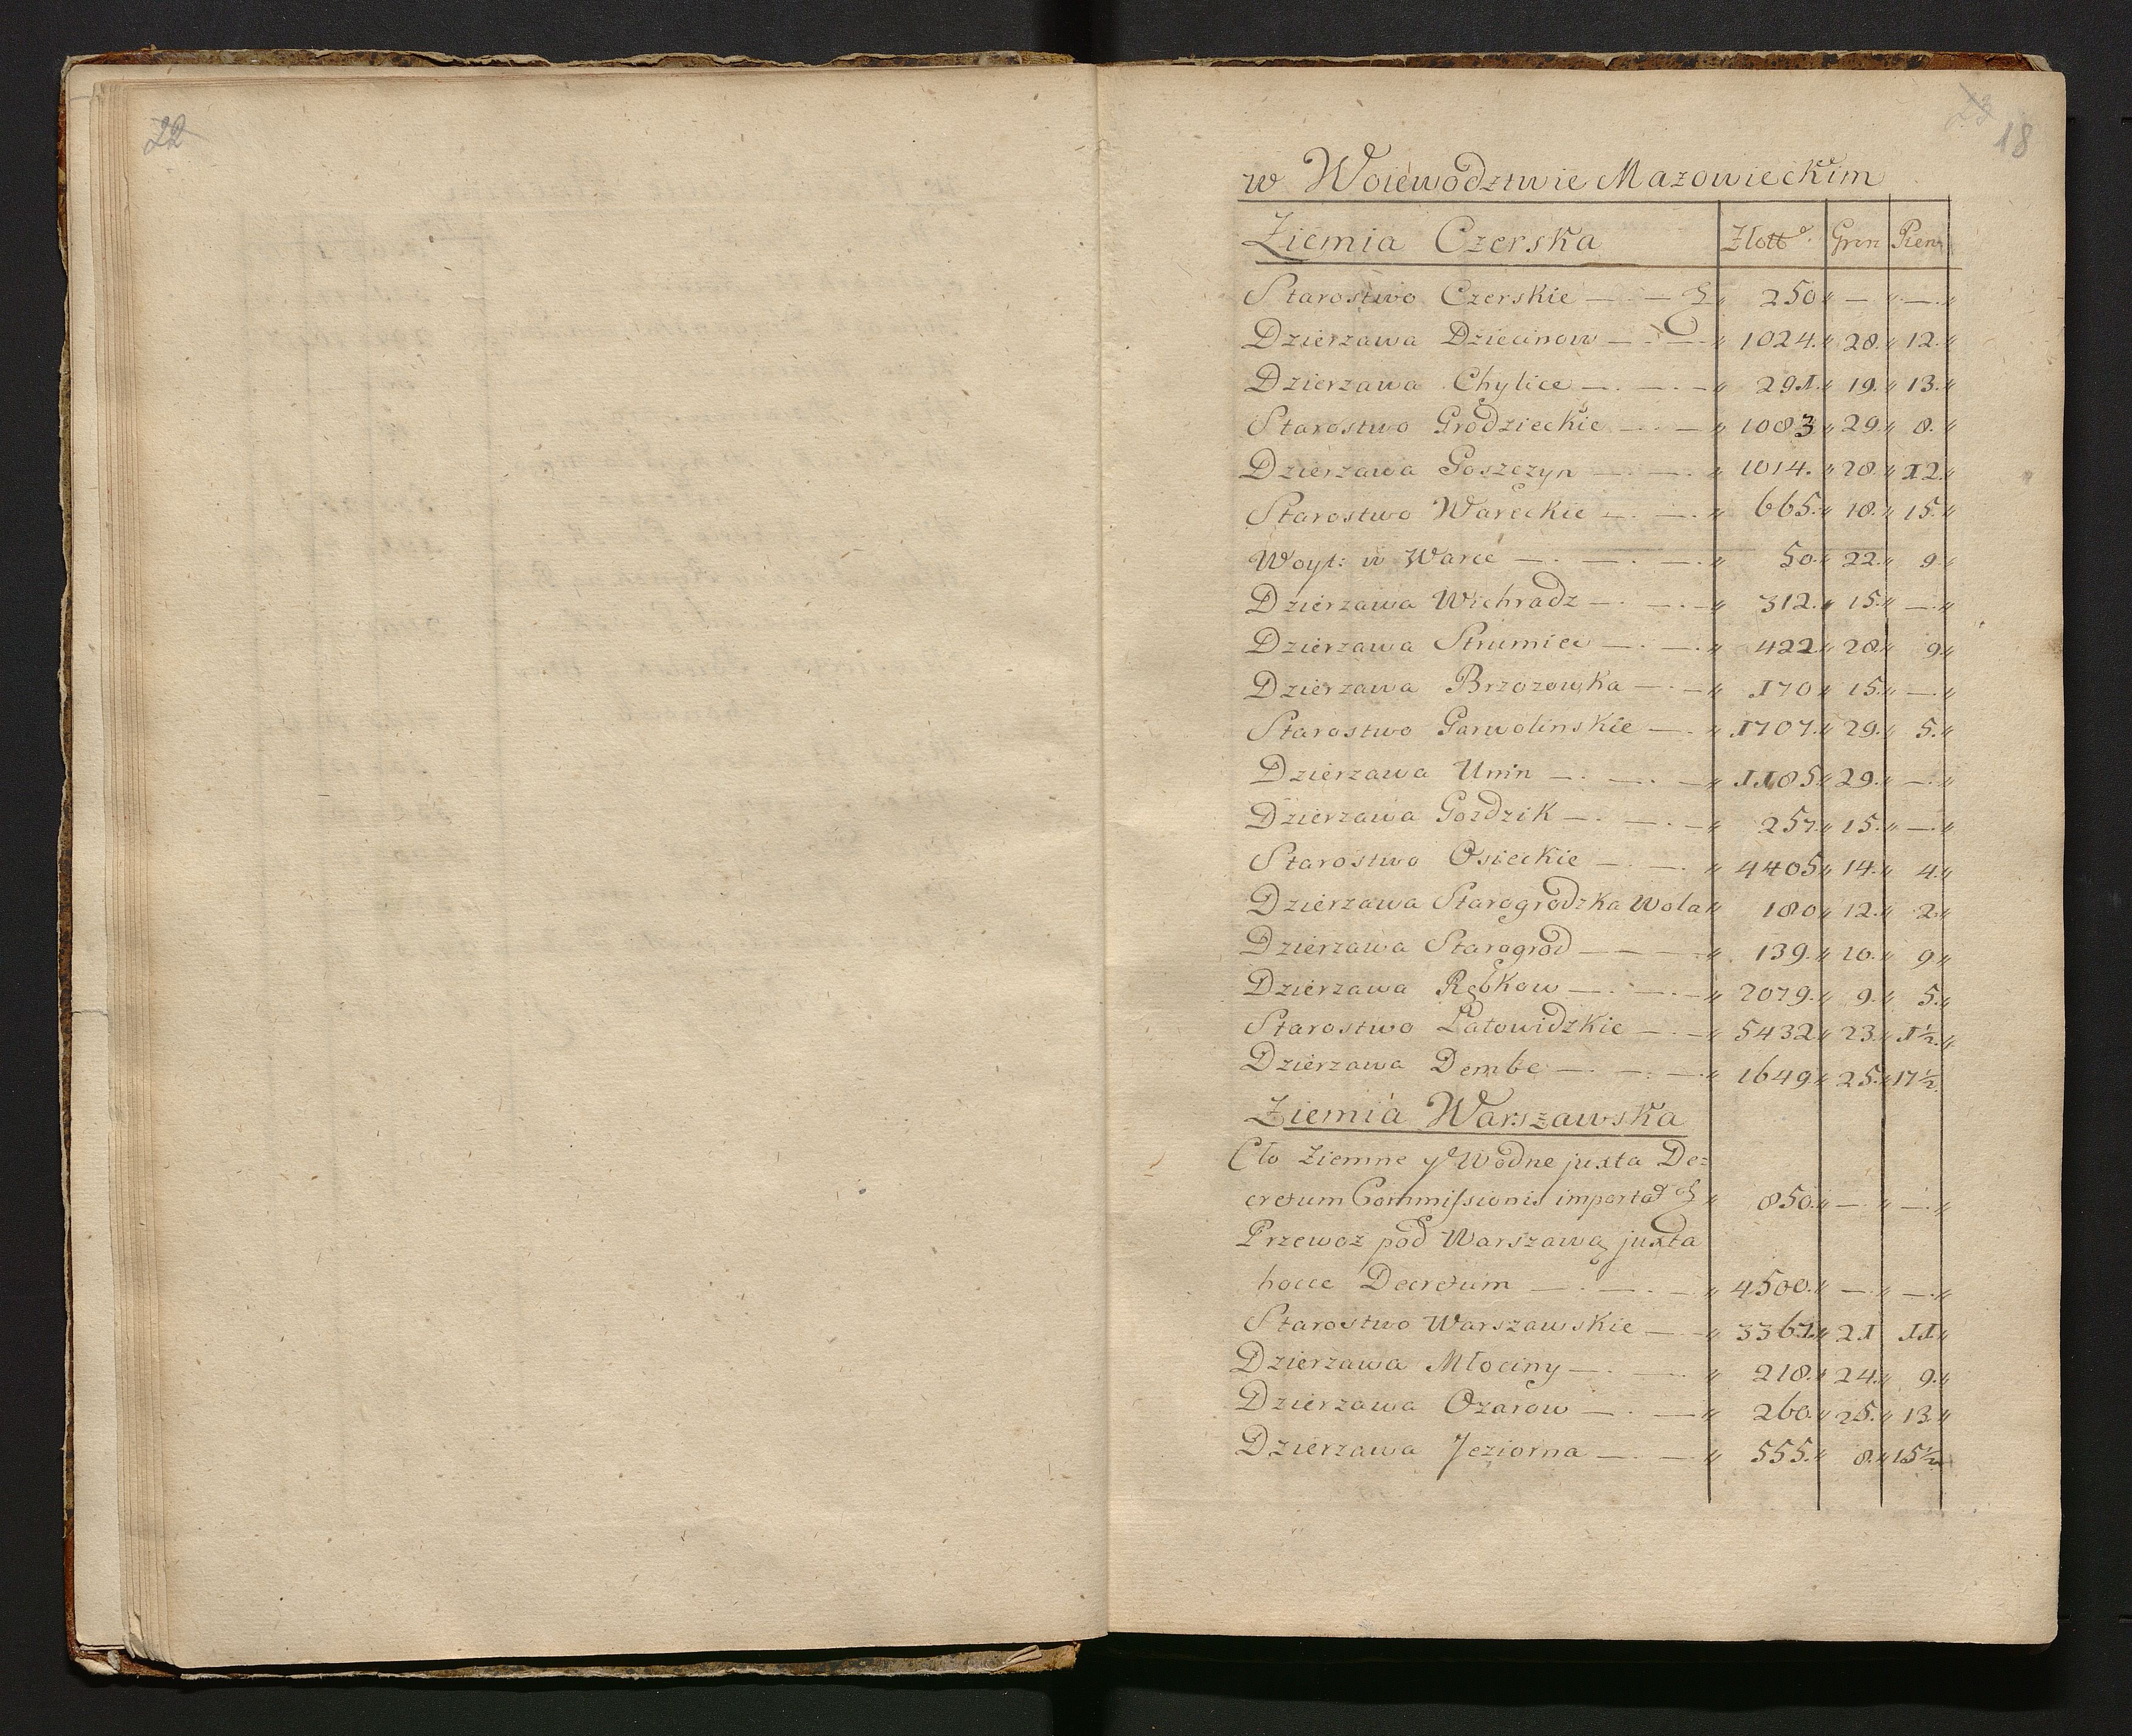 22
23
18
w Woiewodztwie Mazowieckim
Ziemia Czerska Złott. Gron Pien
Starostwo Czerskie — — „ 250 „ — „ — „
Dzierzawa Dziecinow — — „ 1024. „ 28. „ 12. „
Dzierzawa Chylice — . — . — „ 291. „ 19. „ 13. „
Starostwo Grodzieckie — . — „ 1083 „ 29. „ 8. „
Dzierzawa Goszczyn — . — . „ 1014. „ 28. „ 12. „
Starostwo Wareckie — . — . „ 665. „ 18. „ 15. „
Woyt: w Warce — . — . — . „ 50. „ 22. „ 9 „
Dzierzawa Wichradz — . — . — „ 312. „ 15. „ — . „
Dzierzawa Strumiec — . — . „ 422. „ 28. „ 9 „
Dzierzawa Brzozowka — . — „ 170 „ 15. „ — . „
Starostwo Garwolinskie — . „ 1707. „ 29. „ 5. „
Dzierzawa Unin — . — . — „ 1185. „ 29. „ — . „
Dzierzawa Gozdzik — . — . — „ 257. „ 15. „ — . „
Starostwo Osieckie — . — . „ 4405 „ 14. „ 4. „
Dzierzawa Starogrodzka Wola „ 180 „ 12. „ 2. „
Dzierzawa Starogrod — — — . „ 139. „ 20. „ 9 „
Dzierzawa Rębkow — . — . — „ 2079. „ 9. „ 5. „
Starostwo Latowidzkie — . — „ 5432. „ 23. „ 1½. „
Dzierzawa Dembe — . — . — . „ 1649. „ 25. „ 17½.
Ziemia Warszawska
Cło Ziemne y Wodne juxta De=
cretum Commissionis importat „ 850. „ — . „ — . „
Przewoz pod Warszawą juxta
hocce Decretum — . — . — „ 4500. „ — . „ — . „
Starostwo Warszawskie — — „ 3367. „ 21 11 „
Dzierzawa Młociny — . — . „ 218. „ 24. „ 9. „
Dzierzawa Ozarow — . — „ 260. „ 25. „ 13. „
Dzierzawa Jeziorna — . — „ 555. „ 8. „ 15½ „